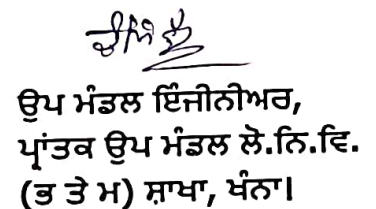 ਉਪ ਮੰਡਲ ਇੰਜੀਨੀਅਰ,
ਪ੍ਰਾਂਤਕ ਉਪ ਮੰਡਲ ਲੋ.ਨਿ.ਵਿ.
(ਭ ਤੇ ਮ) ਸ਼ਾਖਾ, ਖੰਨਾ।